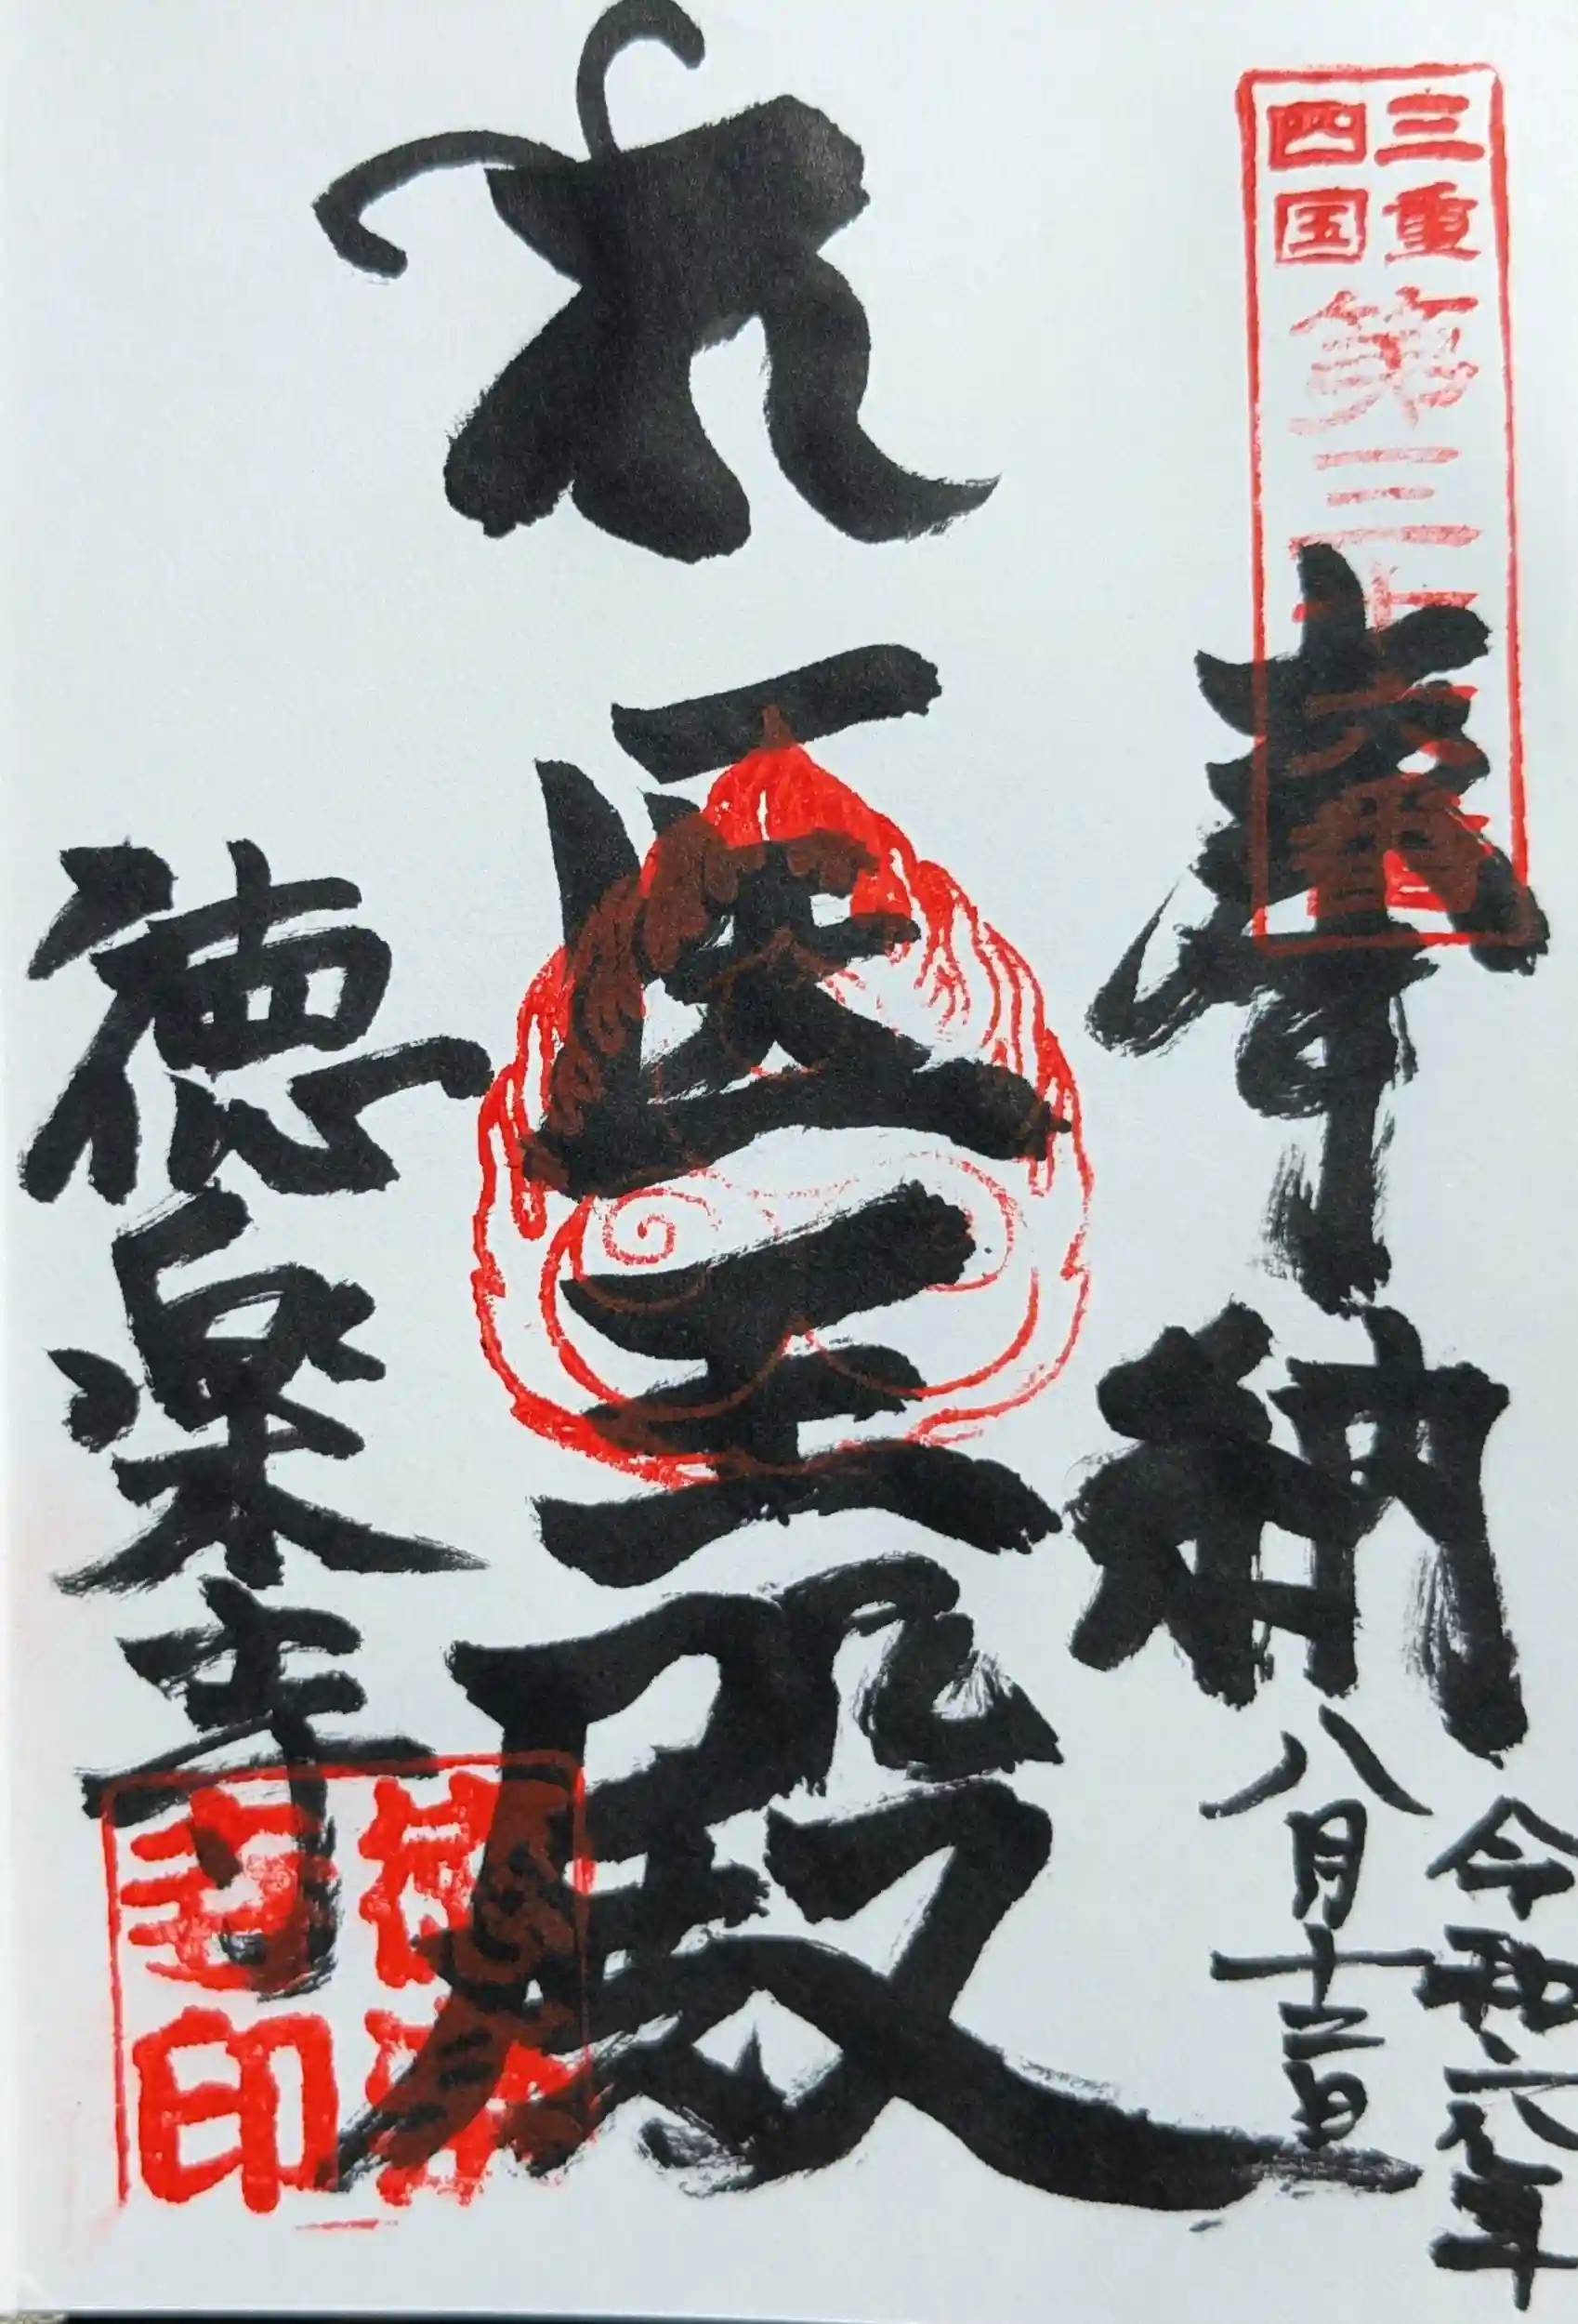 三重
四国
第三十六番
奉納
令和六年
八月十二日
भै
医王殿
徳楽寺
徳楽
寺印